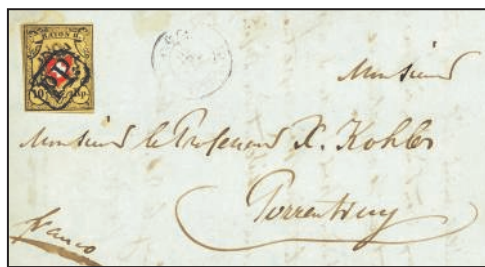 RAYON II.
PP
Monsieur
Monsieur le Professeur X. Kohler
Porrentruy
franco